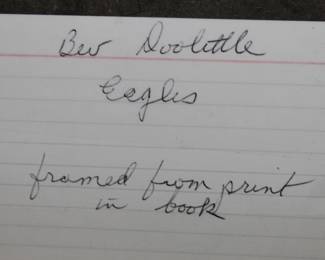 Bev Doolittle
Eagles
framed from print
in book